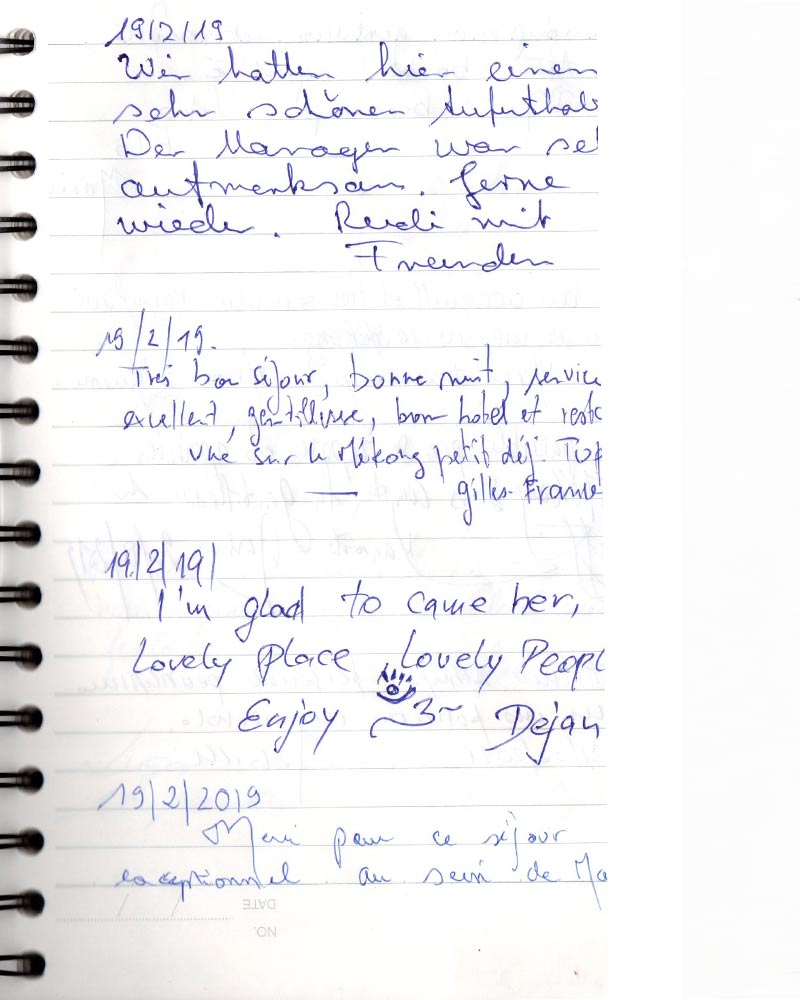 19/2/19
Wir hatten hier einen
sehr schönen Aufenthalt
Der Manager war se
aufmerksam. Gerne
wieder. Rudi mit
Freunden
19/2/19.
Très bon séjour, bonne nuit, service
excellent, gentillesse, bon hotel et resto
vue sur le Mékong petit déj. Top
Gilles. France
19/2/19/
I'm glad to came her,
Lovely place Lovely Peopl
Enjoy Dejan
19/2/2019
Merci pour ce séjour
exceptionnel au sein de Ma
DATE
NO.